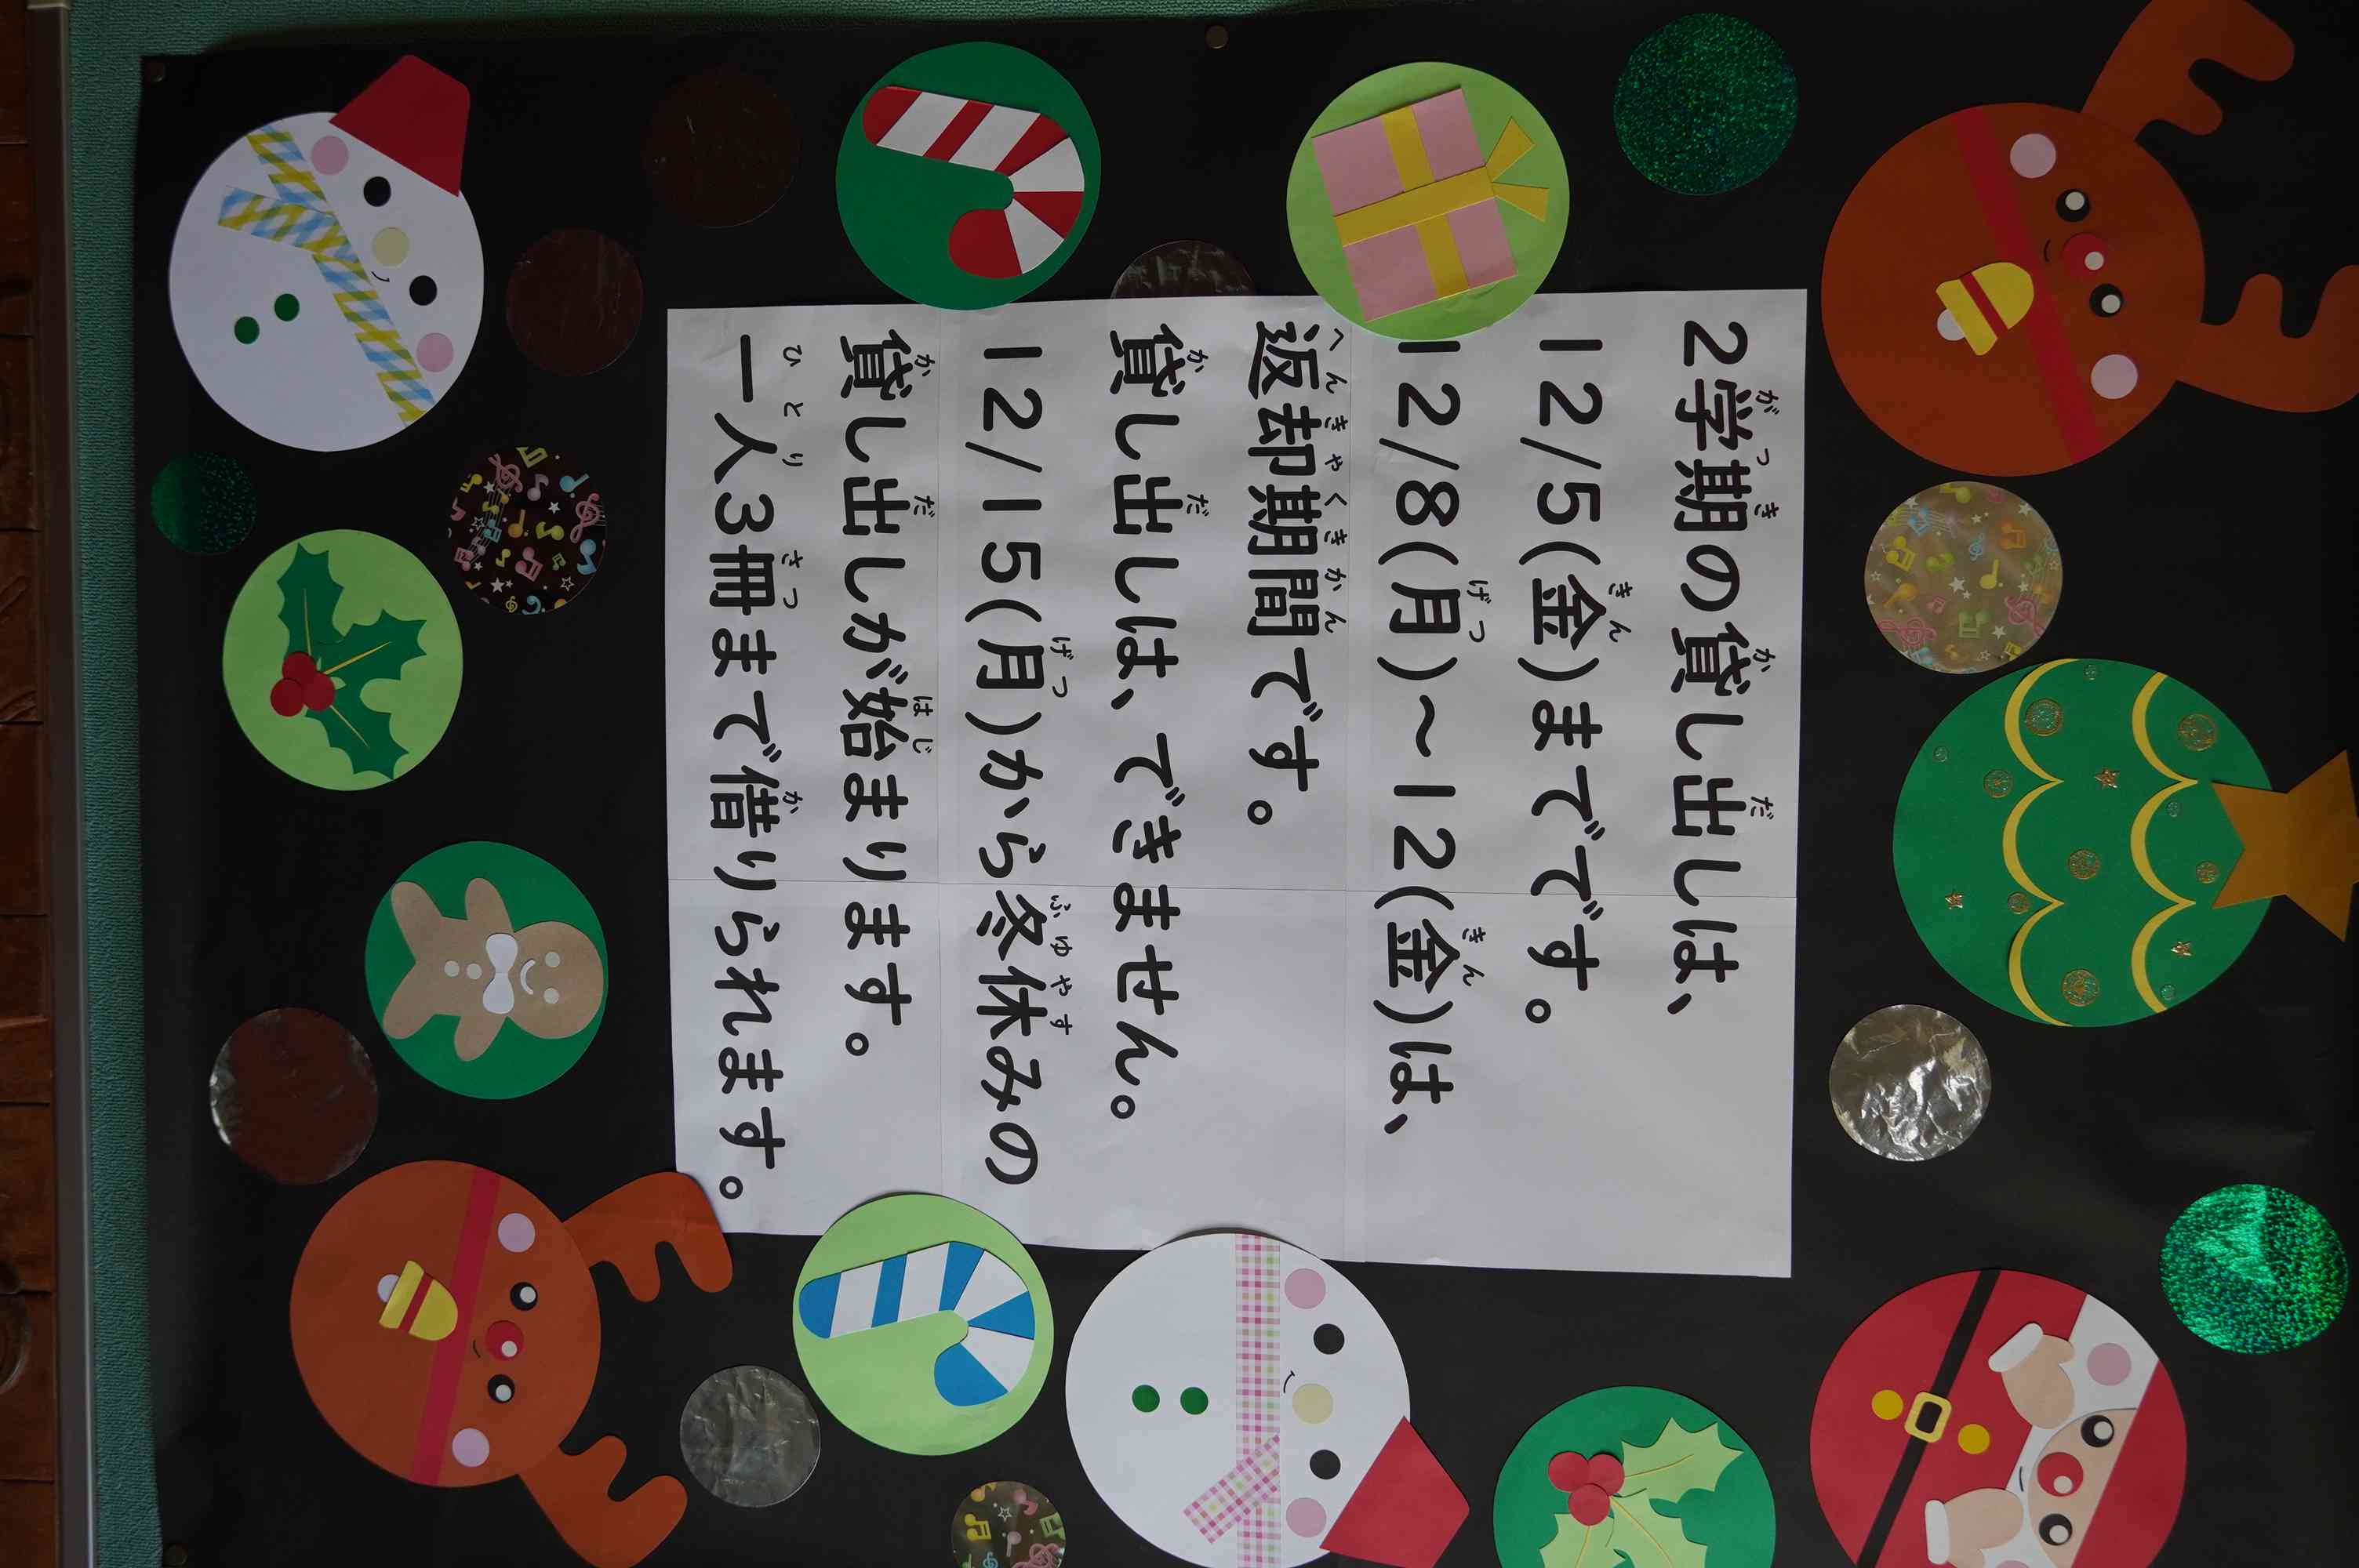 2学期の貸し出しは、
12/5(金)までです。
12/8(月)～12(金)は、
返却期間です。
貸し出しは、できません。
12/15(月)から冬休みの
貸し出しが始まります。
一人3冊まで借りられます。